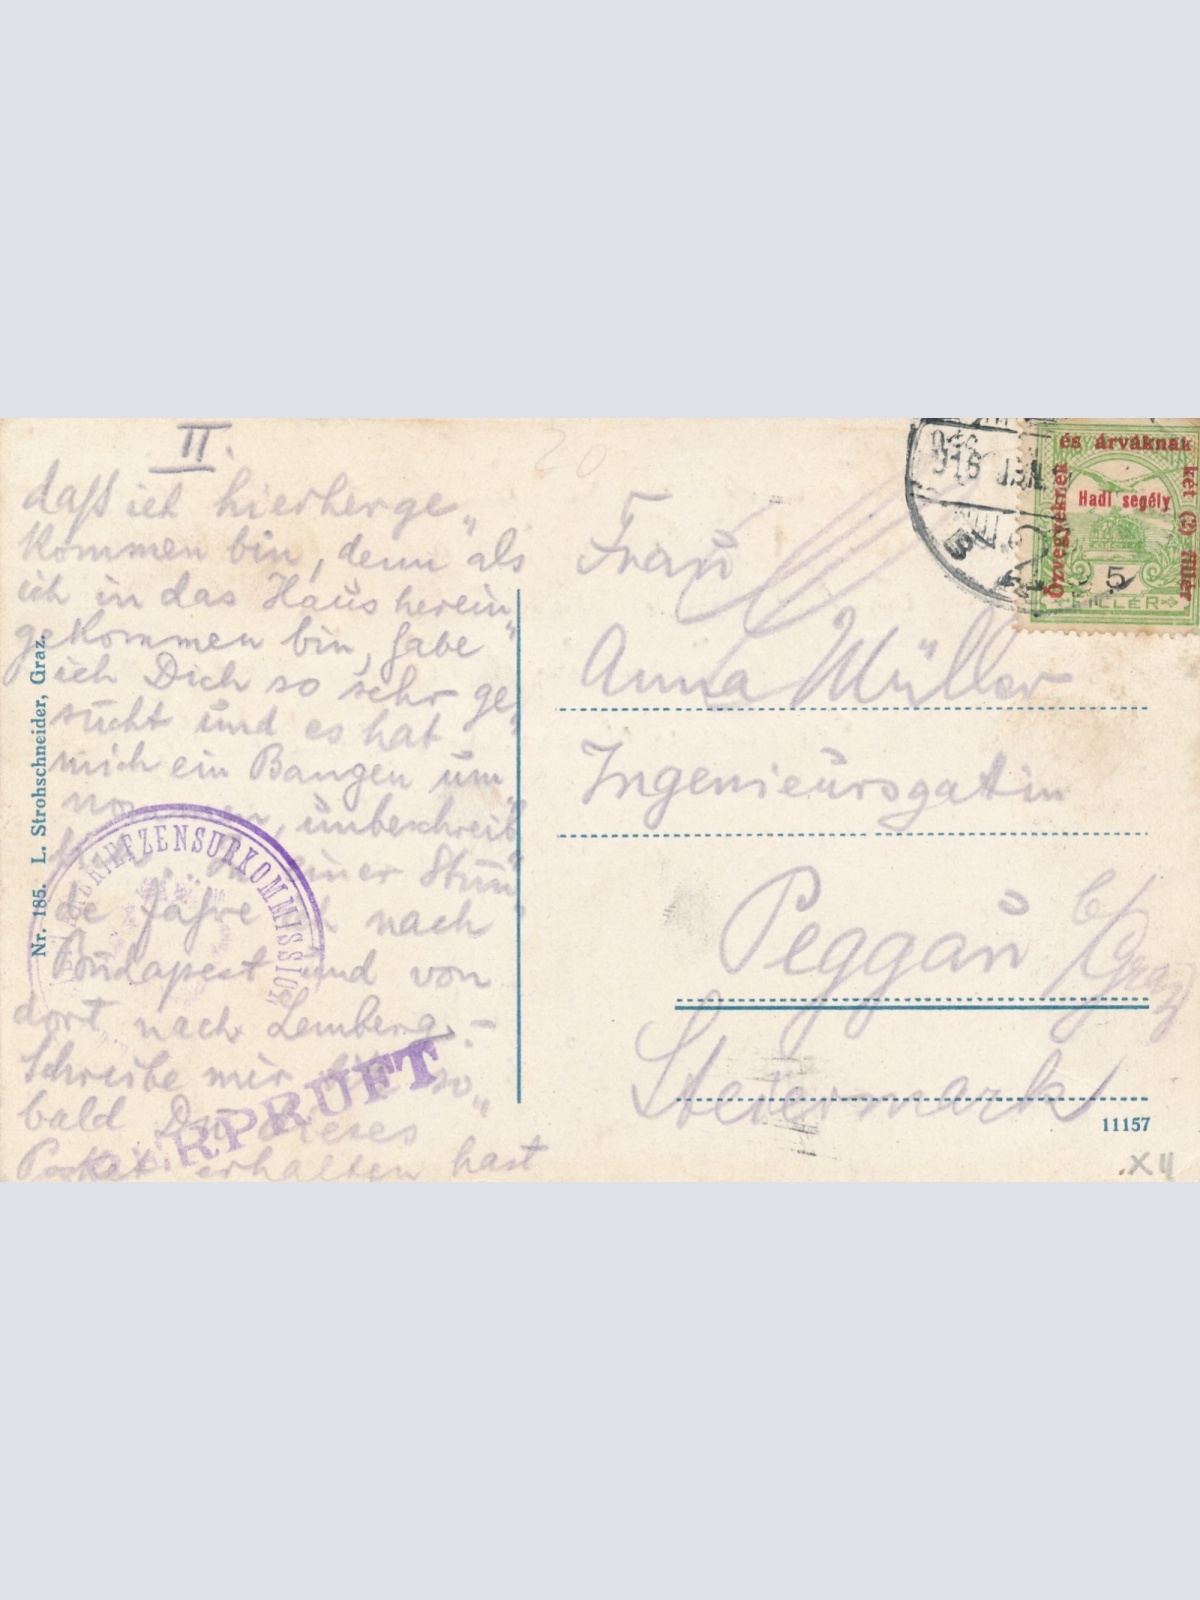 II.
daß ich hierherge„
kommen bin, denn als
ich in das Haus herein„
gekommen bin, habe
ich Dich so sehr ge„
sucht und es hat
mich ein Bangen um„
unbeschreib„
einer Stun„
de fahre ich nach
Budapest und von
dort nach Lemberg. –
Schreibe mir so„
bald Du dieses
Packet erhalten hast
Nr. 185. L. Strohschneider, Graz.
BRIEFZENSURKOMMISSION
ÜBERPRÜFT
Frau
Anna Müller
Ingenieursgattin
Peggau b/Graz
Steiermark
11157
X 4
Özvegyeknek és árváknak két (2) fillér
Hadi segély
5
FILLÉR